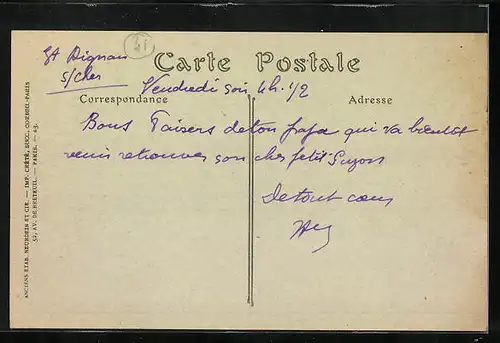 St Aignan
s/Cher
41
Carte Postale
Vendredi soir 4h. 1/2
Correspondance
Adresse
Bons Baisers de ton papa qui va bientôt
venir retrouver son cher petit Suzon
De tout cœur
ANCIENS ETAB. NEURDEIN ET CIE. — IMP. CRÉTÉ, SUCC. CORBEIL-PARIS
52, AV. DE BRETEUIL. — PARIS.